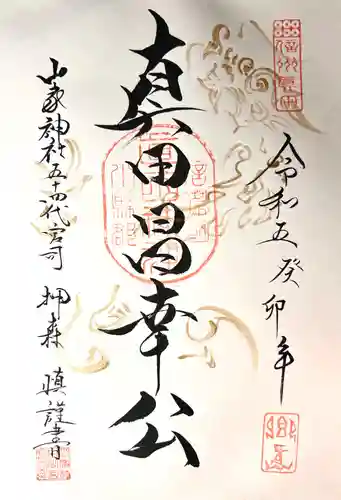 令和五癸卯年
真田昌幸公
山家神社五十四代宮司 押森 慎謹書